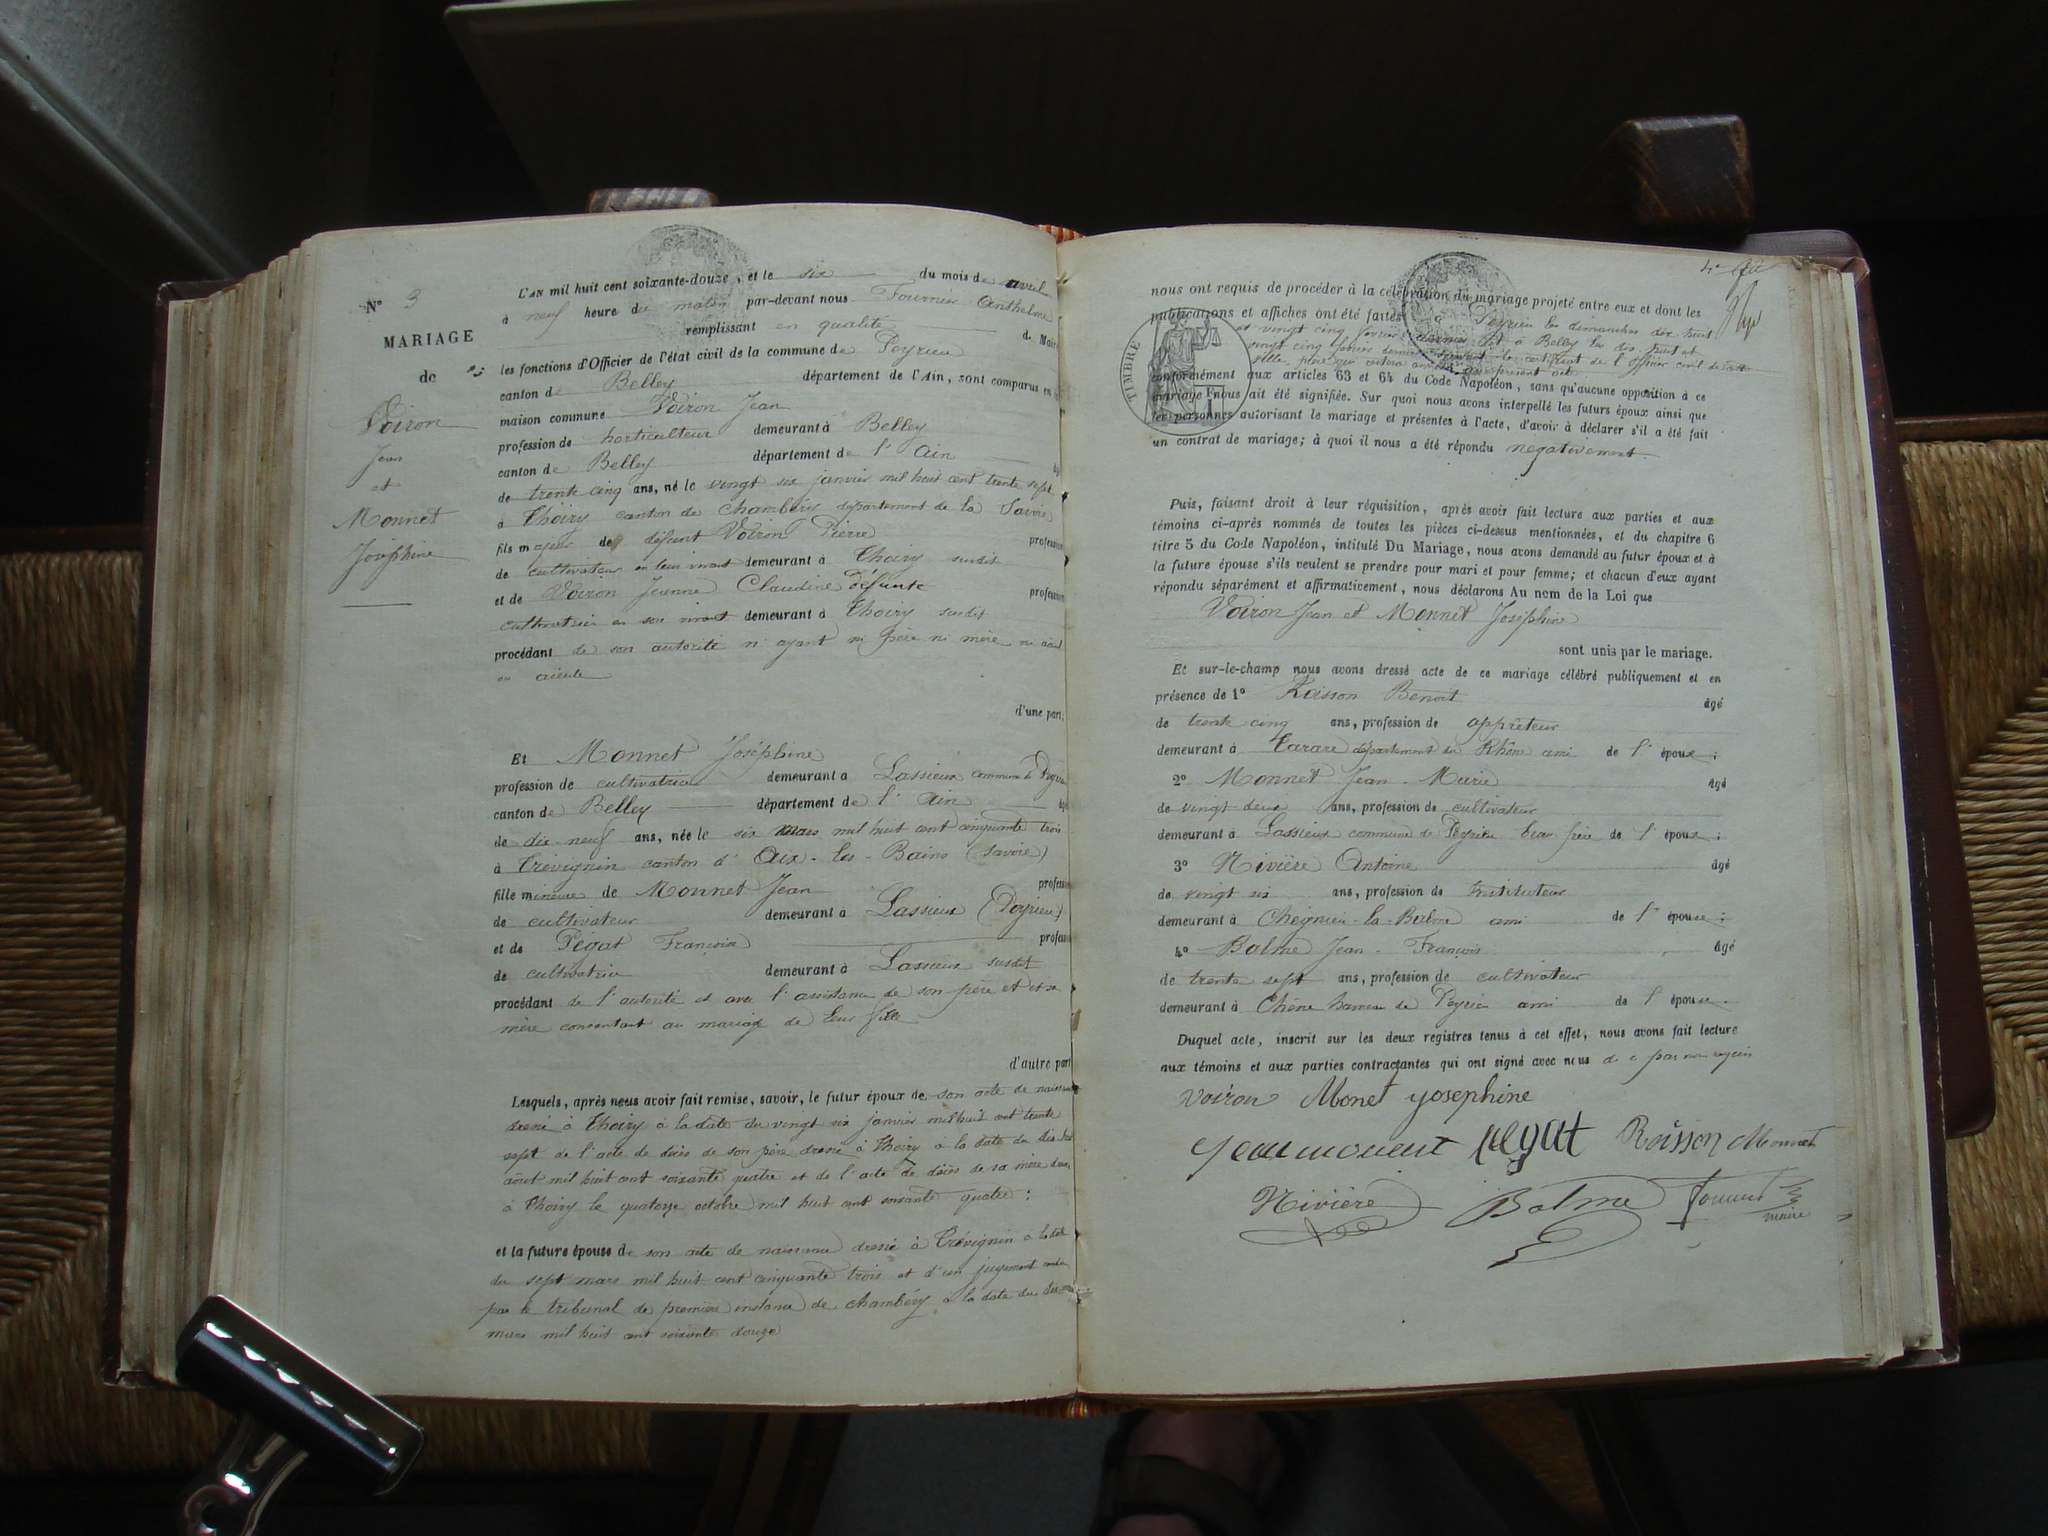 N° 3
MARIAGE
de
Voiron
Jean
et
Monnet
Joséphine
L'AN mil huit cent soixante-douze, et le six du mois de avril
à neuf heure du matin par-devant nous Fournier Anthelme
remplissant en qualité de Maire
les fonctions d'Officier de l'état civil de la commune de Peyrieu
canton de Belley département de l'Ain, sont comparus en
maison commune Voiron Jean
profession de horticulteur demeurant à Belley
canton de Belley département de l'Ain âgé
de trente cinq ans, né le vingt six janvier mil huit cent trente sept
à Thoiry canton de Chambéry département de la Savoie
fils majeur de défunt Voiron Pierre profession
de cultivateur en son vivant demeurant à Thoiry susdit
et de Voiron Jeanne Claudine défunte profession
cultivatrice en son vivant demeurant à Thoiry susdit
procédant de son autorité n'ayant ni père ni mère ni aïeul
ou aïeule
d'une part;
Et Monnet Joséphine
profession de cultivatrice demeurant à Lassieux commune de Peyrieu
canton de Belley département de l'Ain âgé
de dix neuf ans, née le six mars mil huit cent cinquante trois
à Trévignin canton d'Aix-les-Bains (Savoie)
fille mineure de Monnet Jean profession
de cultivateur demeurant à Lassieux (Peyrieu)
et de Pégat Françoise profession
de cultivatrice demeurant à Lassieux susdit
procédant de l'autorité et avec l'assistance de son père et de sa
mère consentant au mariage de leur fille
d'autre part
Lesquels, après nous avoir fait remise, savoir, le futur époux de son acte de naissance
dressé à Thoiry à la date du vingt six janvier mil huit cent trente
sept de l'acte de décès de son père dressé à Thoiry à la date du dix-huit
août mil huit cent soixante quatre et de l'acte de décès de sa mère dressé
à Thoiry le quatorze octobre mil huit cent soixante quatre:
et la future épouse de son acte de naissance dressé à Trévignin à la date
du sept mars mil huit cent cinquante trois et d'un jugement rendu
par le tribunal de première instance de Chambéry à la date du
mars mil huit cent soixante douze
nous ont requis de procéder à la célébration du mariage projeté entre eux et dont les
publications et affiches ont été faites à Peyrieu les dimanches dix huit
et vingt cinq février dernier et à Belley les dix huit et
vingt cinq février dernier suivant le certificat de l'officier civil de cette
ville, pièce qui restera annexée au présent acte
TIMBRE
conformément aux articles 63 et 64 du Code Napoléon, sans qu'aucune opposition à ce
mariage nous ait été signifiée. Sur quoi nous avons interpellé les futurs époux ainsi que
les personnes autorisant le mariage et présentes à l'acte, d'avoir à déclarer s'il a été fait
un contrat de mariage; à quoi il nous a été répondu négativement.
Puis, faisant droit à leur réquisition, après avoir fait lecture aux parties et aux
témoins ci-après nommés de toutes les pièces ci-dessus mentionnées, et du chapitre 6
titre 5 du Code Napoléon, intitulé Du Mariage, nous avons demandé au futur époux et à
la future épouse s'ils veulent se prendre pour mari et pour femme; et chacun d'eux ayant
répondu séparément et affirmativement, nous déclarons Au nom de la Loi que
Voiron Jean et Monnet Joséphine
sont unis par le mariage.
Et sur-le-champ nous avons dressé acte de ce mariage célébré publiquement et en
présence de 1° Raisson Benoit âgé
de trente cinq ans, profession de apprêteur
demeurant à Tarare département du Rhône ami de l'époux;
2° Monnet Jean-Marie âgé
de vingt deux ans, profession de cultivateur
demeurant à Lassieux commune de Peyrieu beau frère de l'époux;
3° Nivière Antoine âgé
de vingt six ans, profession de Instituteur
demeurant à Cheignieu-la-Balme ami de l'épouse;
4° Balme Jean-François âgé
de trente sept ans, profession de cultivateur
demeurant à Chêne hameau de Peyrieu ami de l'épouse.
Duquel acte, inscrit sur les deux registres tenus à cet effet, nous avons fait lecture
aux témoins et aux parties contractantes qui ont signé avec nous de ce par nous requis
Voiron Monet yosephine
Jean monent pegat Raisson Monnet
Nivière Balme Fournier
maire